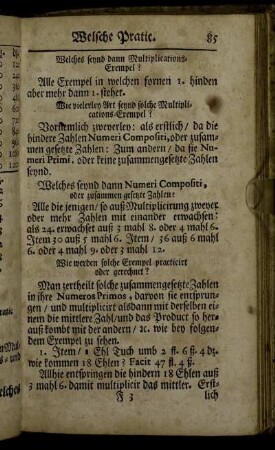 Welsche Pratic. 85
Welches seynd dann Multiplications-
Exempel?
Alle Exempel in welchen fornen 1. hinden
aber mehr dann 1. stehet.
Wie vielerley Art seynd solche Multipli-
cations-Exempel?
Vornemlich zweyerley: als erstlich / da die
hindere Zahlen Numeri Compositi, oder zusam-
men gesetzte Zahlen: Zum andern / da sie Nu-
meri Primi. oder keine zusammengesetzte Zahlen
seynd.
Welches seynd dann Numeri Compositi,
oder zusammen gesetzte Zahlen?
Alle die jenigen / so auß Multiplicirung zweyer
oder mehr Zahlen mit einander erwachsen:
als 24. erwachset auß 3 mahl 8. oder 4 mahl 6.
Item 30 auß 5 mahl 6. Item / 36 auß 6 mahl
6. oder 4 mahl 9. oder 3 mahl 12.
Wie werden solche Exempel practicirt
oder gerechnet?
Man zertheilt solche zusammengesetzte Zahlen
in ihre Numeros Primos, darvon sie entsprun-
gen / und multiplicirt alsdann mit derselben ei-
nem die mittlere Zahl / und das Product so her-
auß kombt mit der andern / ꝛc. wie bey folgen-
dem Exempel zu sehen.
1. Item / 1 Ehl Tuch umb 2 fl. 6 ß. 4 dz.
wie kommen 18 Ehlen? Facit 47 fl. 4 ß.
Allhie entspringen die hindern 18 Ehlen auß
3 mahl 6. damit multiplicir das mittler. Erst-
F 3 lich